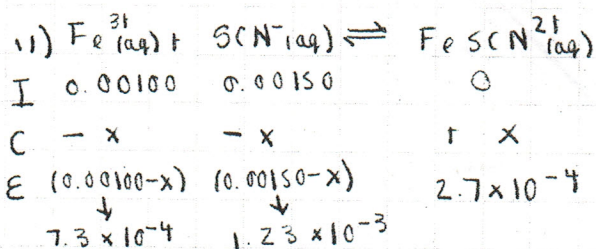 11) Fe³⁺(aq) + SCN⁻(aq) ⇌ FeSCN²⁺(aq)
I 0.00100 0.00150 0
C - x - x + x
E (0.00100-x) (0.00150-x) 2.7x10⁻⁴
↓ ↓
7.3 x 10⁻⁴ 1.23 x 10⁻³